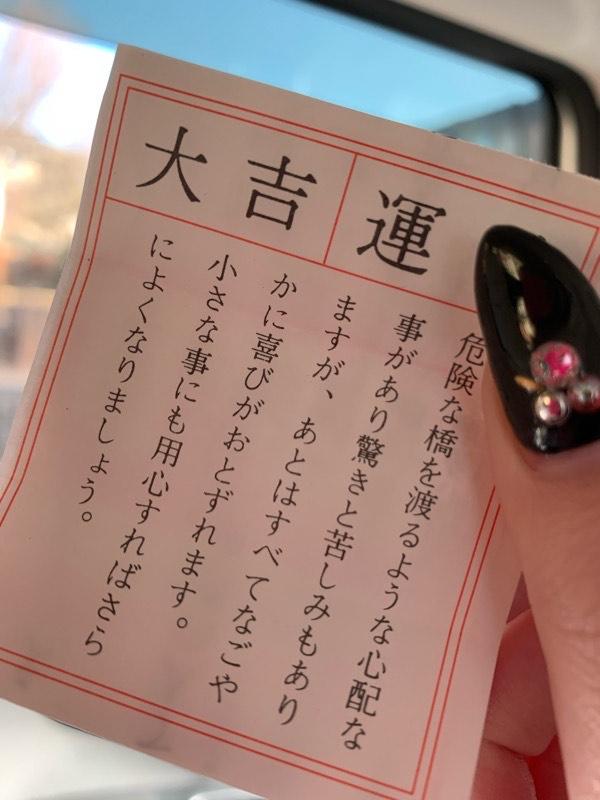 大吉 運
危険な橋を渡るような心配な
事があり驚きと苦しみもあり
ますが、あとはすべてなごや
かに喜びがおとずれます。
小さな事にも用心すればさら
によくなりましょう。